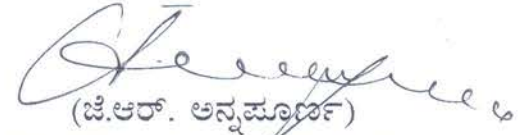 (ಜೆ.ಆರ್. ಅನ್ನಪೂರ್ಣ)